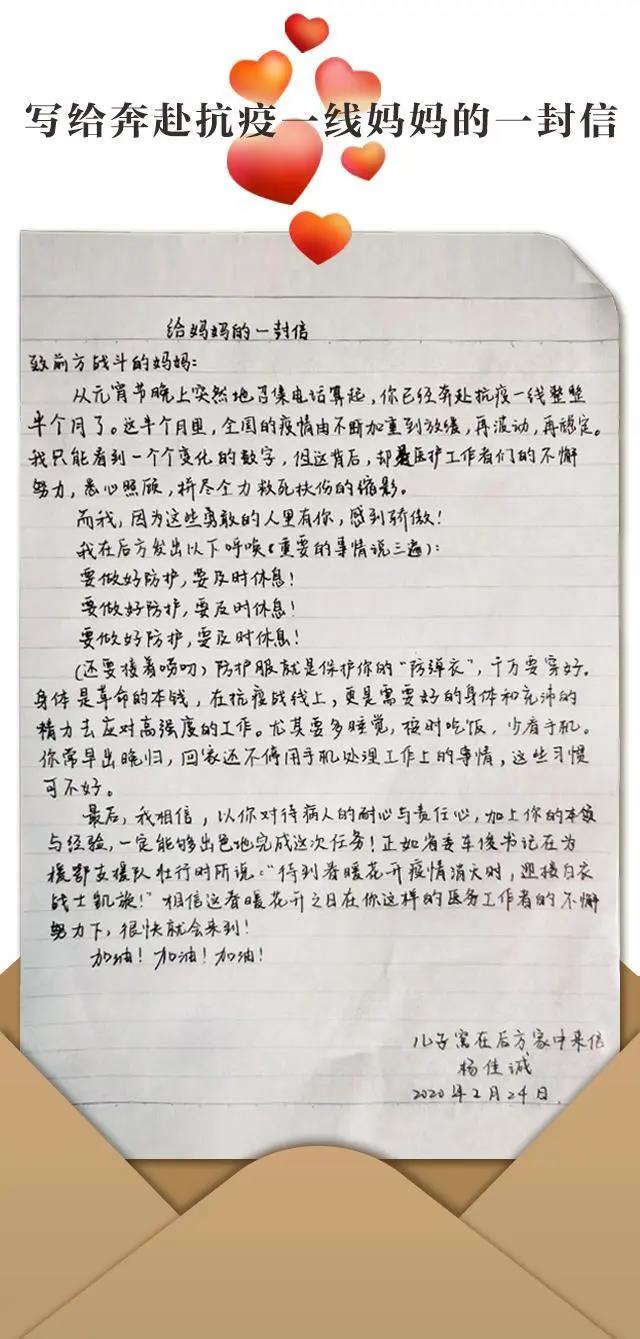 写给奔赴抗疫一线妈妈的一封信
给妈妈的一封信
致前方战斗的妈妈:
从元宵节晚上突然地召集电话算起,你已经奔赴抗疫一线整整
半个月了。这半个月里,全国的疫情由不断加重到放缓,再波动,再稳定。
我只能看到一个个变化的数字,但这背后,却是医护工作者们的不懈
努力,悉心照顾,拼尽全力救死扶伤的缩影。
而我,因为这些勇敢的人里有你,感到骄傲!
我在后方发出以下呼唤(重要的事情说三遍):
要做好防护,要及时休息!
要做好防护,要及时休息!
要做好防护,要及时休息!
(还要接着唠叨)防护服就是保护你的“防弹衣”,千万要穿好。
身体是革命的本钱,在抗疫战线上,更是需要好的身体和充沛的
精力去应对高强度的工作。尤其要多睡觉,按时吃饭,少看手机。
你常早出晚归,回家还不停用手机处理工作上的事情,这些习惯
可不好。
最后,我相信,以你对待病人的耐心与责任心,加上你的本领
与经验,一定能够出色地完成这次任务!正如省委车俊书记在为
援鄂支援队壮行时所说:“待到春暖花开疫情消灭时,迎接白衣
战士凯旋!”相信这春暖花开之日在你这样的医务工作者的不懈
努力下,很快就会来到!
加油!加油!加油!
儿子写在后方家中来信
杨佳诚
2020年2月24日.